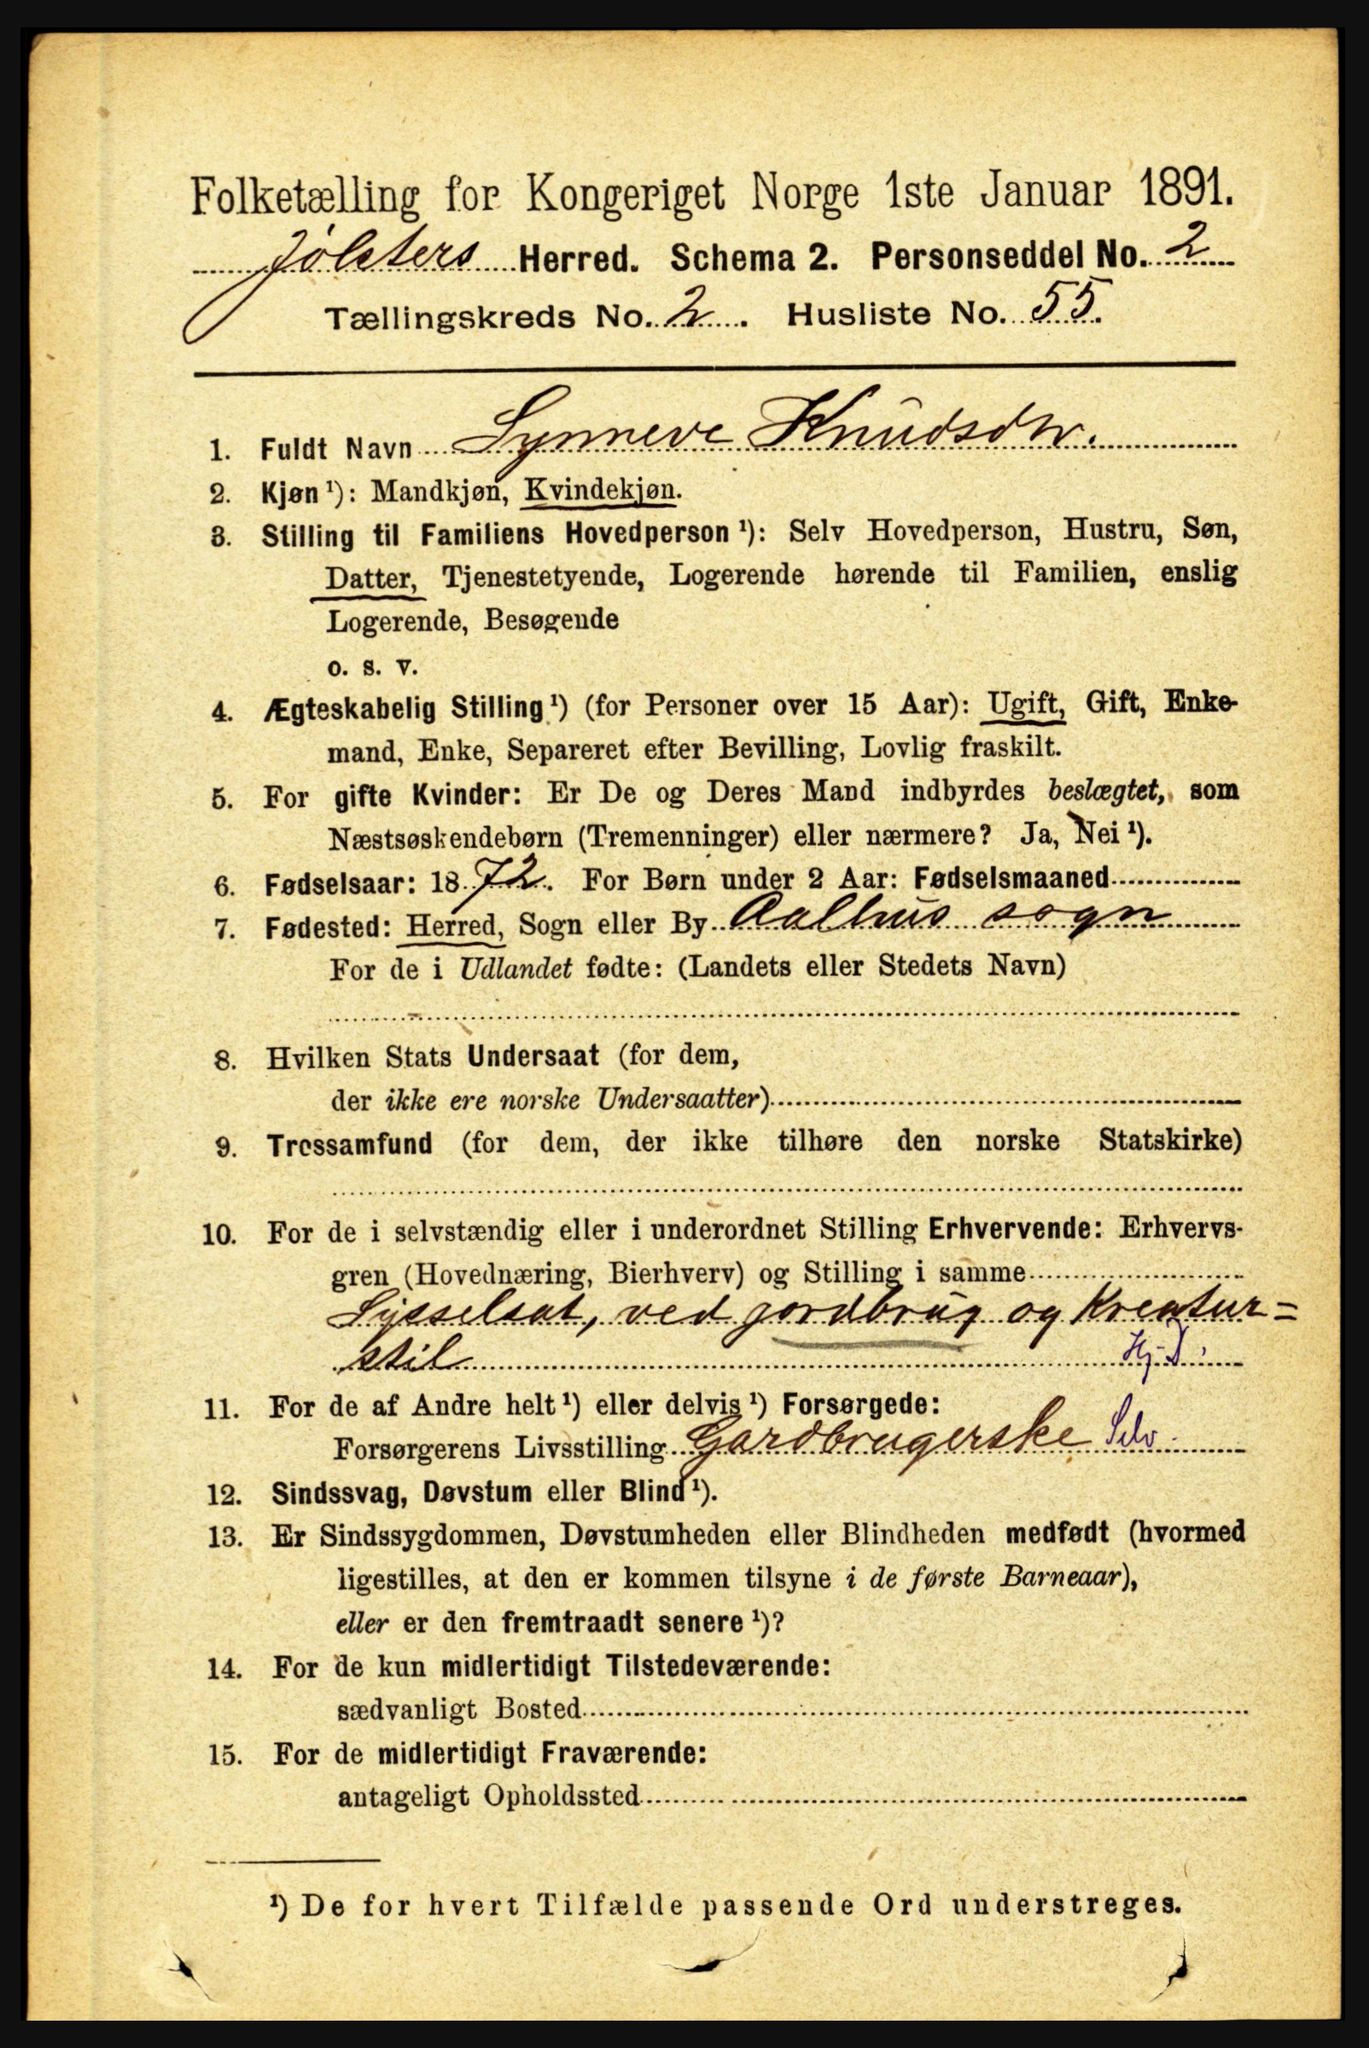 Folketælling for Kongeriget Norge 1ste Januar 1891.
Jølsters Herred. Schema 2. Personseddel No. 2
Tællingskreds No. 2. Husliste No. 55.
1. Fuldt Navn Synneve Knudsdtr.
2. Kjøn ¹): Mandkjøn, Kvindekjøn.
3. Stilling til Familiens Hovedperson ¹): Selv Hovedperson, Hustru, Søn,
Datter, Tjenestetyende, Logerende hørende til Familien, enslig
Logerende, Besøgende
o. s. v.
4. Ægteskabelig Stilling ¹) (for Personer over 15 Aar): Ugift, Gift, Enke-
mand, Enke, Separeret efter Bevilling, Lovlig fraskilt.
5. For gifte Kvinder: Er De og Deres Mand indbyrdes beslægtet, som
Næstsøskendebørn (Tremenninger) eller nærmere? Ja, Nei ¹).
6. Fødselsaar: 1872. For Børn under 2 Aar: Fødselsmaaned
7. Fødested: Herred, Sogn eller By Aalhus sogn
For de i Udlandet fødte: (Landets eller Stedets Navn)
8. Hvilken Stats Undersaat (for dem,
der ikke ere norske Undersaatter)
9. Trossamfund (for dem, der ikke tilhøre den norske Statskirke)
10. For de i selvstændig eller i underordnet Stilling Erhvervende: Erhvervs-
gren (Hovednæring, Bierhverv) og Stilling i samme
Sysselsat, ved jordbrug og Kreatur=
stil Hj-D.
11. For de af Andre helt ¹) eller delvis ¹) Forsørgede:
Forsørgerens Livsstilling Gardbrugerske Selv
12. Sindssvag, Døvstum eller Blind ¹).
13. Er Sindssygdommen, Døvstumheden eller Blindheden medfødt (hvormed
ligestilles, at den er kommen tilsyne i de første Barneaar),
eller er den fremtraadt senere ¹)?
14. For de kun midlertidigt Tilstedeværende:
sædvanligt Bosted
15. For de midlertidigt Fraværende:
antageligt Opholdssted
¹) De for hvert Tilfælde passende Ord understreges.